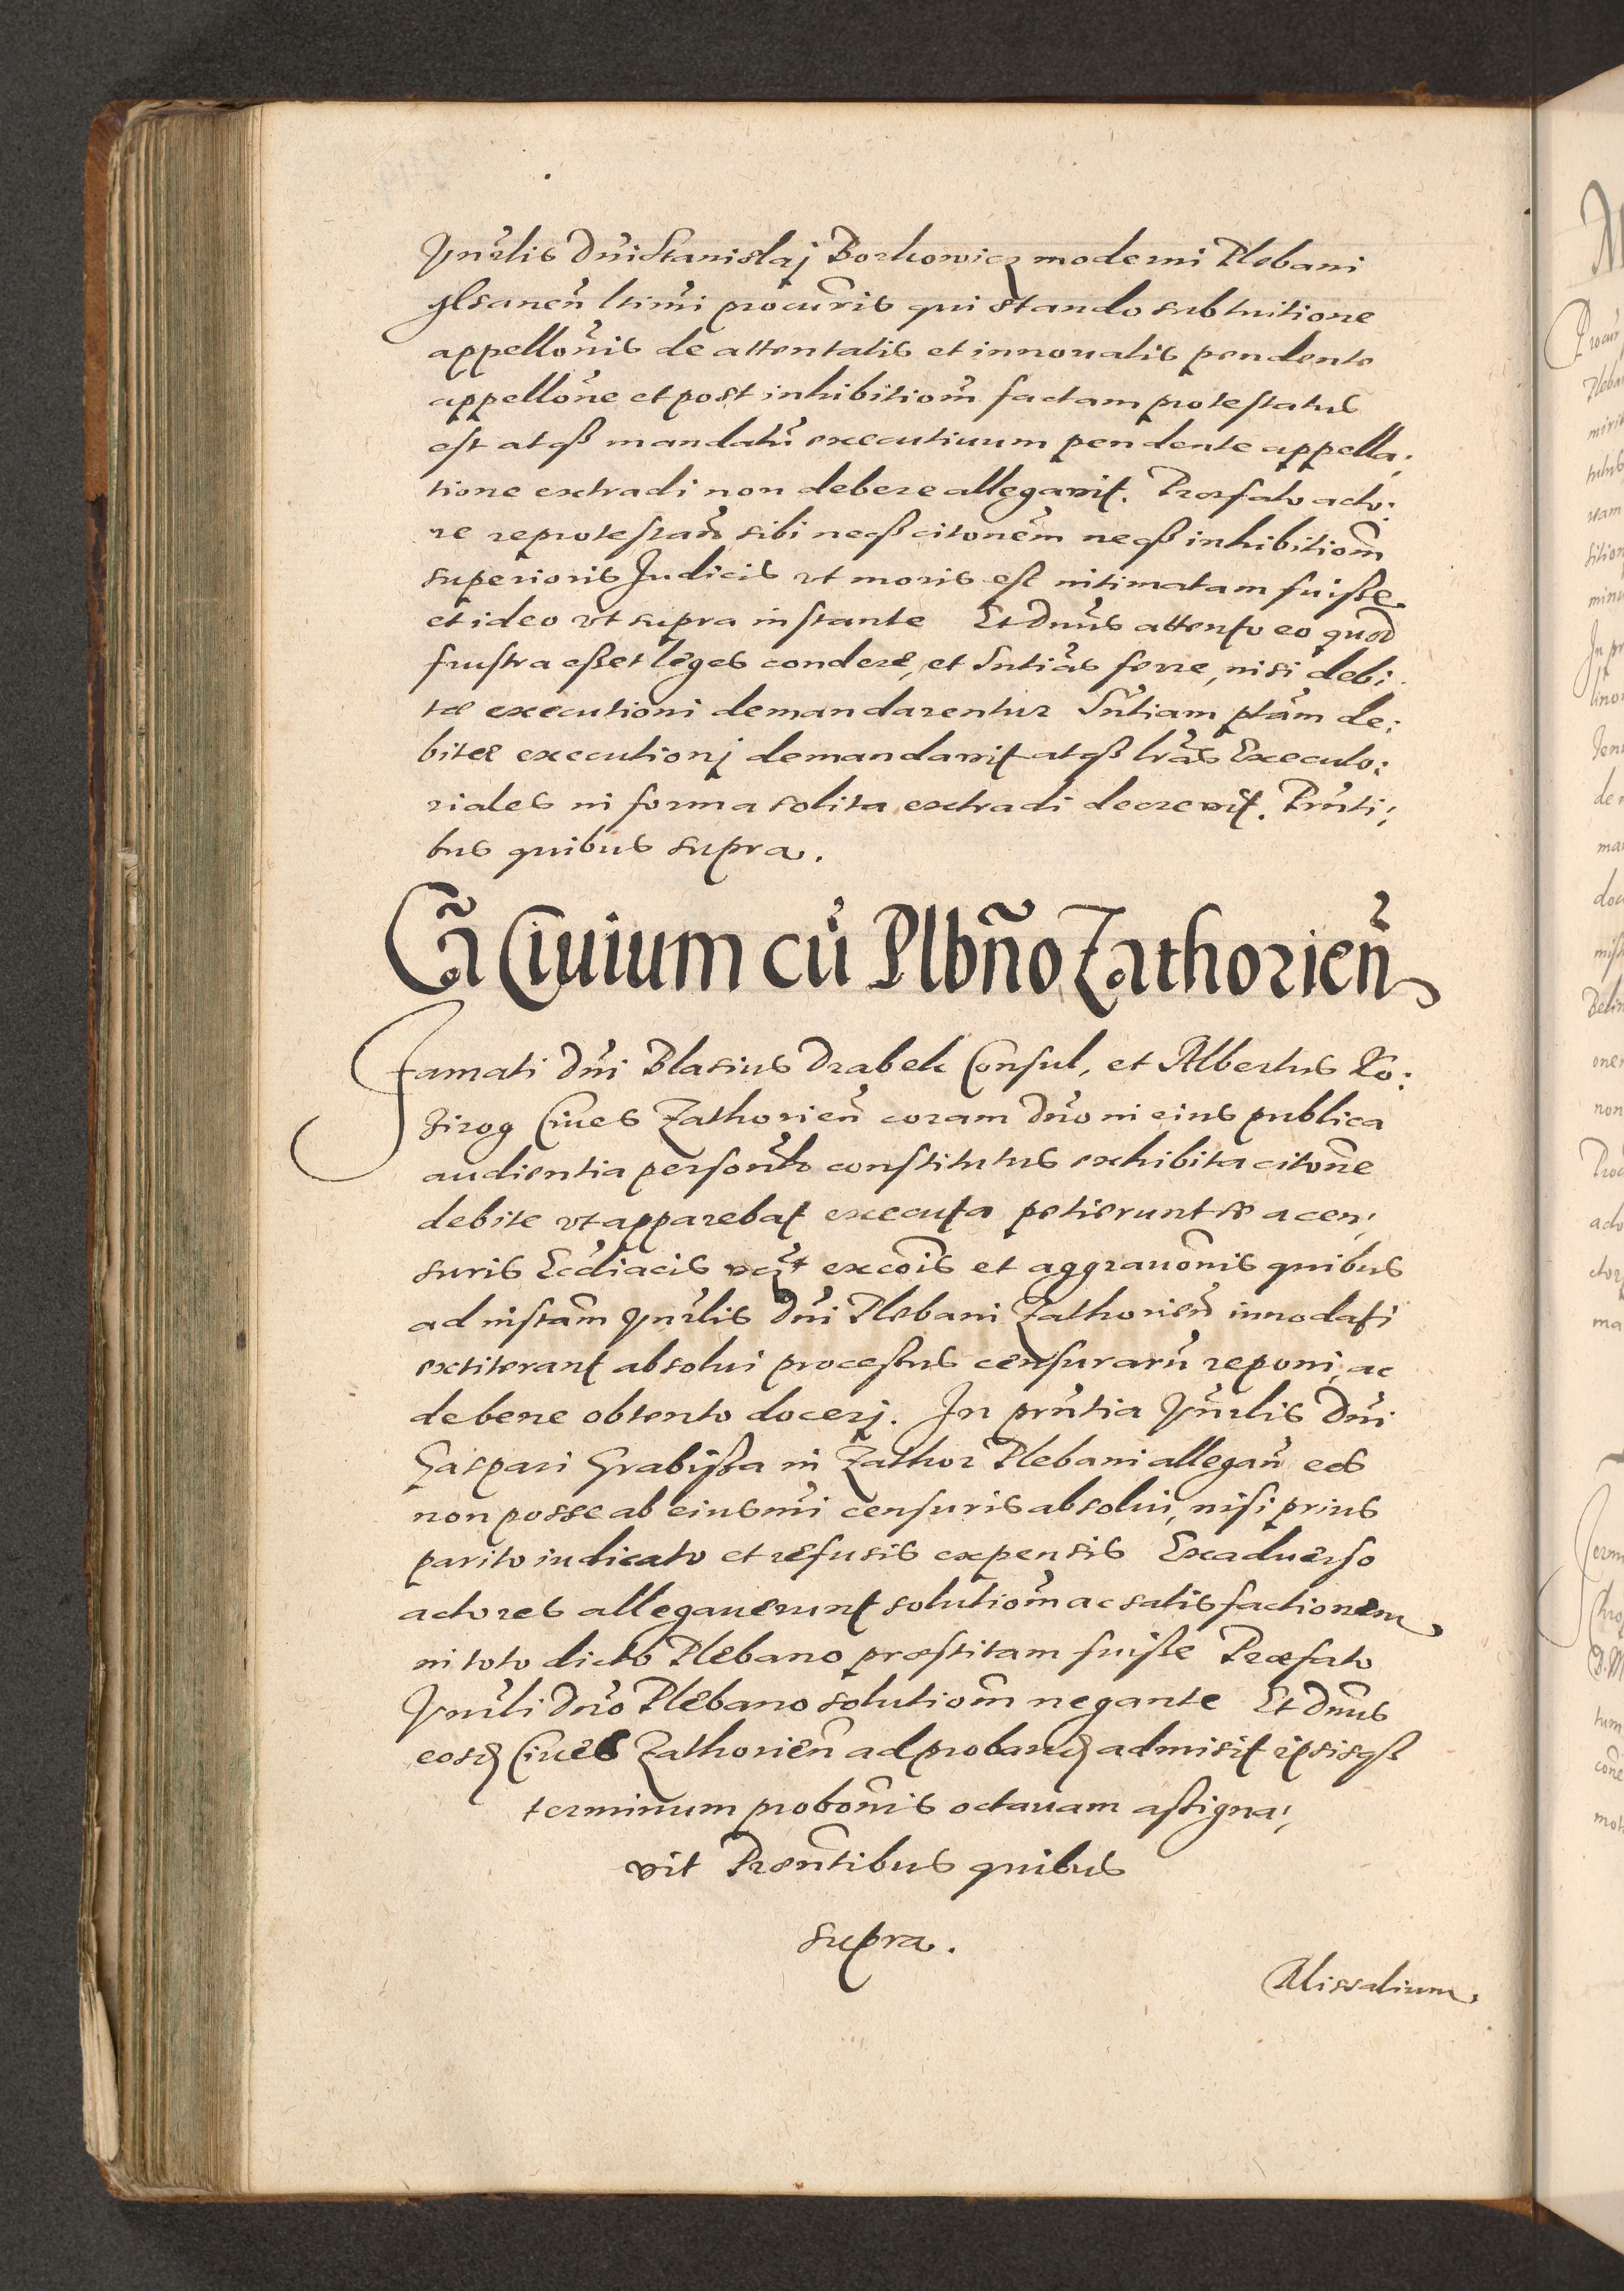 Vnrlis Dni Stanislaj Borkowicz moderni Plebani
głsanen ltimi procuris qui stando sub tuitione
appellonis de attentatis et innouatis pendente
appellone et post inhibitiom factam protestatus
est atqß mandatu executiuum pendente appella:
tione extradi non debere allegavit. Præfato acto:
re reprotestan sibi neqß citonem neqß inhibitiom
superioris Judicis vt moris est intimatam fuisse
et ideo vt supra instante Et Dnus attento eo quod
frustra esset leges condere, et Sntias ferre, nisi debi:
tæ executioni demandarentur Sntiam ptam de:
bitæ executionj demandavit atqß lras Executo:
riales in forma solita extradi decrevit. Pnti:
bus quibus supra.
Ca Ciuium cu Plbno Zathorien
Famati Dni Blasius Drabek Consul, et Albertus Ko:
zirog Ciues Zathorien coram Dno in eius publica
audientia personlr constitutus exhibita citone
debite vt apparebat executa petierunt se a cen:
suris Ecclacis vcꝫt excois et aggrauonis quibus
ad instam Vnrlis Dni Plebani Zathorien innodati
extiterant absolui processus censuraru reponi, ac
de bene obtento docerj. In pntia Vnrlis Dni
Gaspari Grabissa in Zathor Plebani allegan eos
non posse ab eiusmi censuris absolui, nisi prius
parito iudicato et refusis expensis Exaduerso
actores allegauerunt solutiom ac satisfactionem
in toto dicto Plebano præstitam fuisse Præfato
Vnrli Dno Plebano solutiom negante Et Dnus
eosd Ciues Zathorien ad proband admisit ipsisqß
terminum probonis octauam assigna:
vit Præntibus quibus
supra.
Missalium